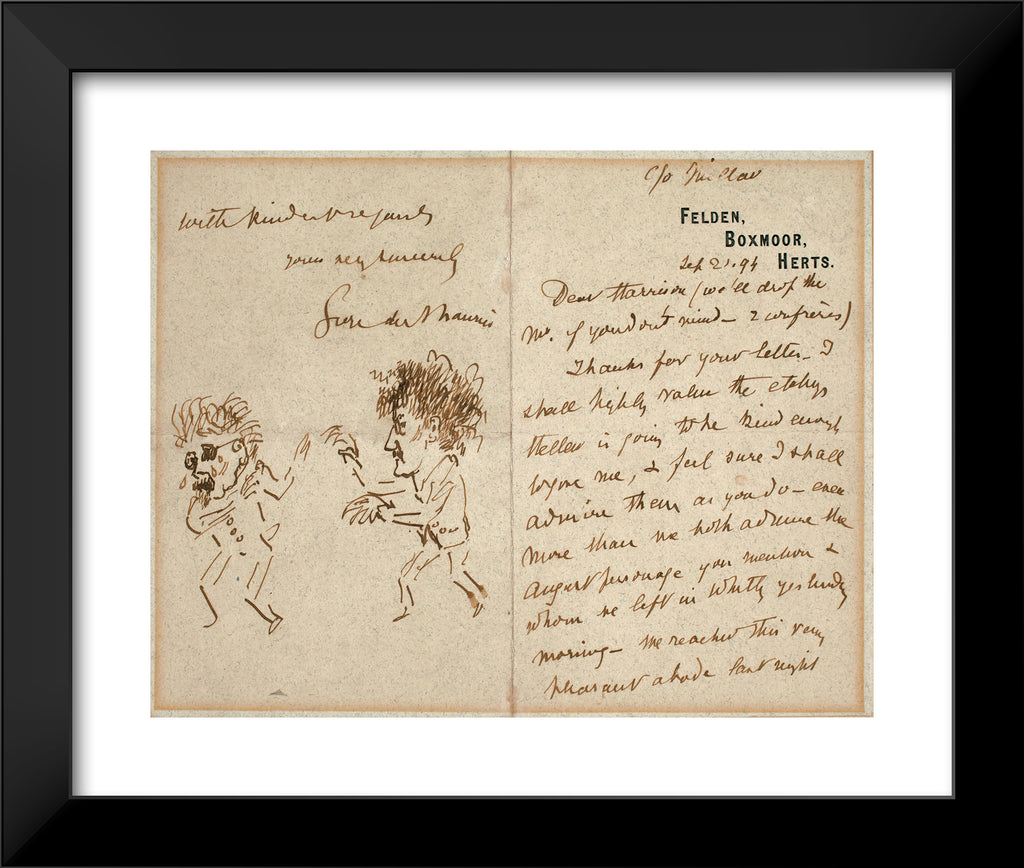 with kindest regards
yours very sincerely
c/o
FELDEN,
BOXMOOR,
HERTS.
Sep 21. 94
Dear Harrison (we'll drop the
Mr. if you don't mind – 2 confrères)
Thanks for your letter – I
shall highly value the etchgs
is going to be kind enough
to give me, & feel sure I shall
admire them as you do – even
more than we both admire the
august personage you mention &
whom we left in Whitby yesterday
morning – we reached this very
pleasant abode last night